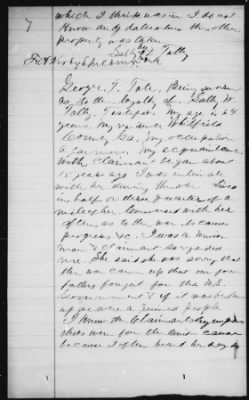 7
which I think was in I do not
know any dates when the other
property was taken
Sally Tally
George T. Being sworn
as to the loyalty of Sally W.
Tally, Testifies my age is 49
years, my residence Whitfield
County Ga, my occupation
a farmer, my acquaintance
with claimant began about
15 years ago I was intimate
with her during the war. Lived
in half or three quarters of a
mile of her. Conversed with her
often as to the war, its causes
progress &c. I was a Union
man & claimant so regarded
me. She said she was sorry that
the war came up that our fore
fathers fought for this U.S.
Government & if it was broken
up we were a ruined people.
I know the Claimant's sympathies
were for the Union cause
because I often heard her say